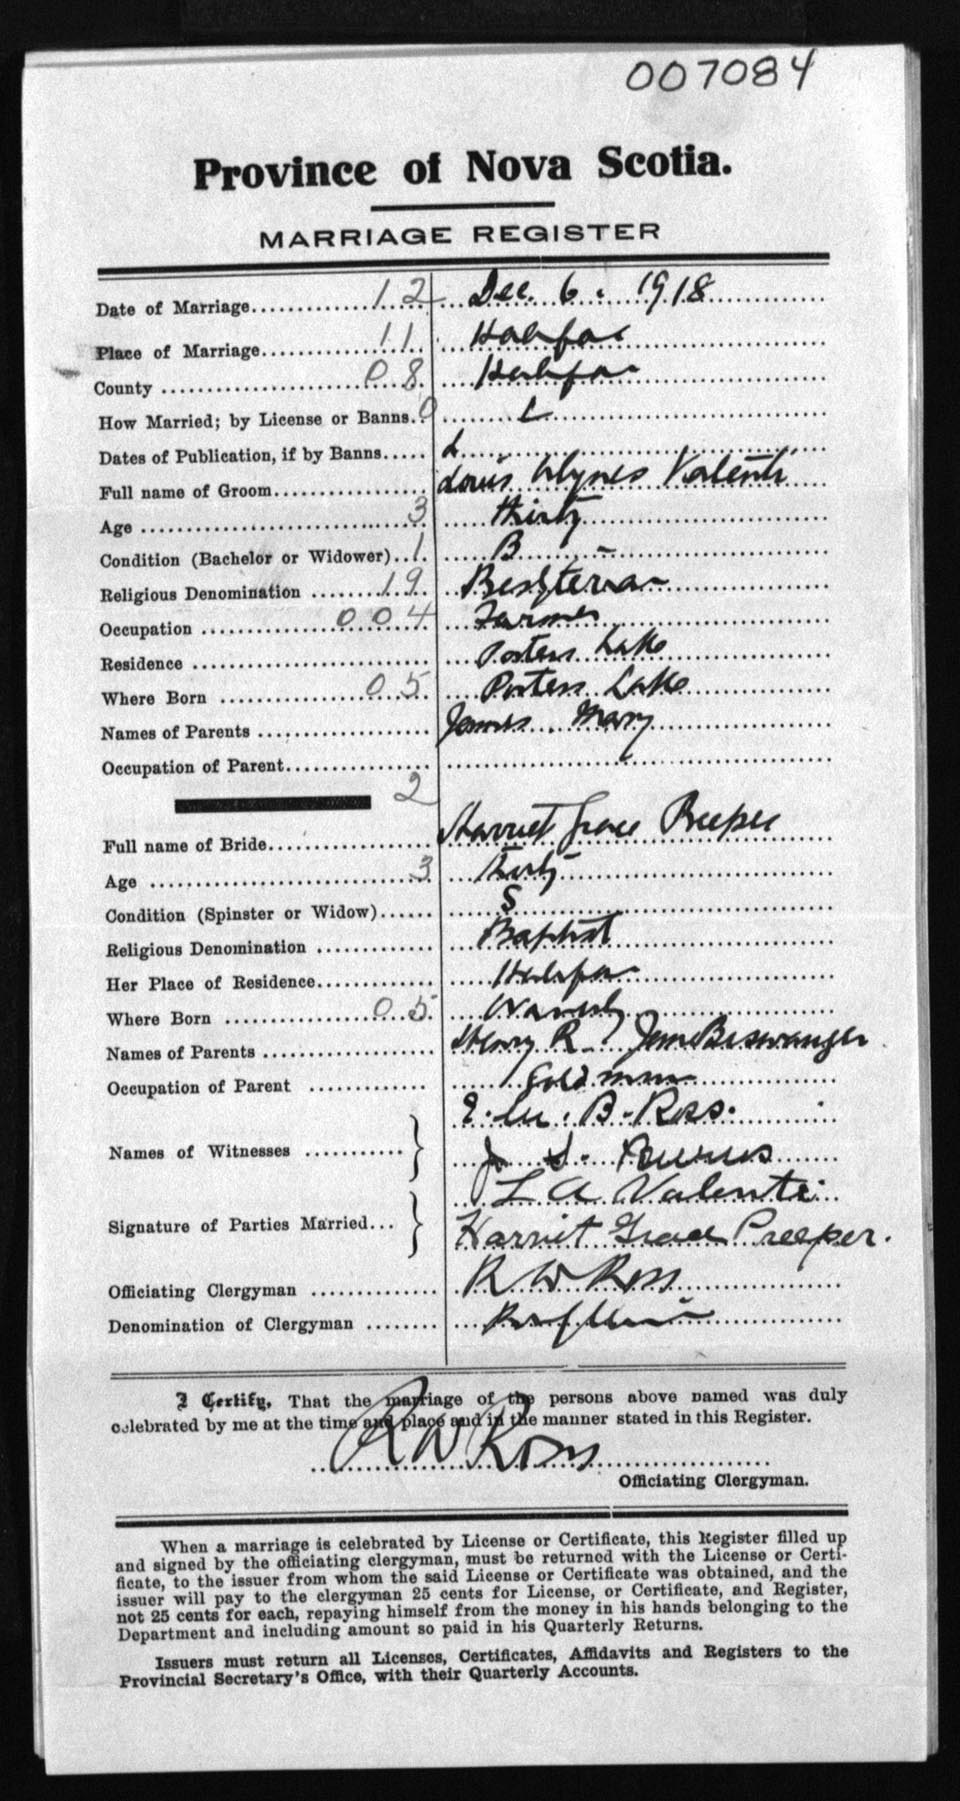 007084
Province of Nova Scotia.
MARRIAGE REGISTER
Date of Marriage 12 Dec. 6. 1918
Place of Marriage 11 Halifax
County 08 Halifax
How Married; by License or Banns. 0 L
Dates of Publication, if by Banns L
Full name of Groom Louis Valenti
Age 3 thirty
Condition (Bachelor or Widower) 1 B
Religious Denomination 19
Occupation 004 Farmer
Residence Porters Lake
Where Born 05 Porters Lake
Names of Parents James. Mary
Occupation of Parent
2
Full name of Bride Harriet Grace Preeper
Age 3 thirty
Condition (Spinster or Widow) S
Religious Denomination Baptist
Her Place of Residence Halifax
Where Born 05 Waverly
Names of Parents Henry R. Beswanger
Occupation of Parent Gold
B. Ross.
Names of Witnesses J S.
L A Valenti
Signature of Parties Married Harriet Grace Preeper.
Officiating Clergyman R W Ross
Denomination of Clergyman
I Certify, That the marriage of the persons above named was duly
celebrated by me at the time and place and in the manner stated in this Register.
R W Ross
Officiating Clergyman.
When a marriage is celebrated by License or Certificate, this Register filled up
and signed by the officiating clergyman, must be returned with the License or Certi-
ficate, to the issuer from whom the said License or Certificate was obtained, and the
issuer will pay to the clergyman 25 cents for License, or Certificate, and Register,
not 25 cents for each, repaying himself from the money in his hands belonging to the
Department and including amount so paid in his Quarterly Returns.
Issuers must return all Licenses, Certificates, Affidavits and Registers to the
Provincial Secretary's Office, with their Quarterly Accounts.